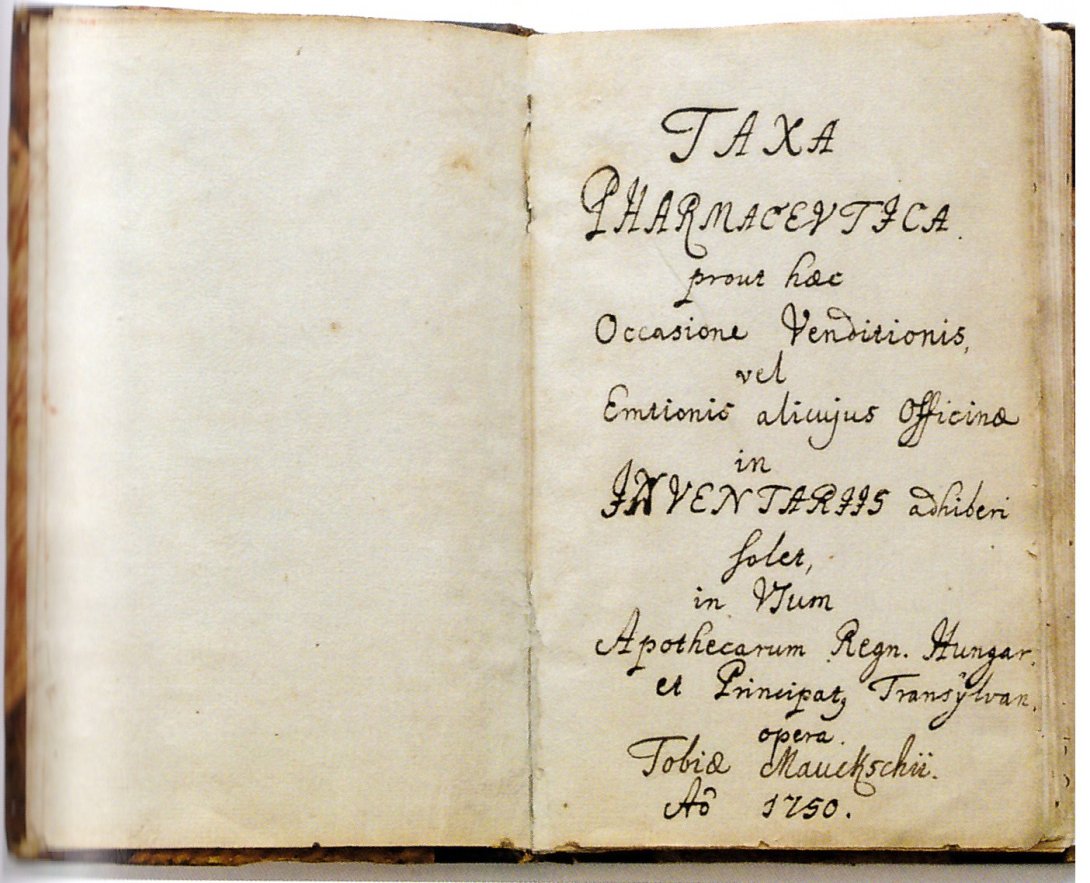 TAXA
PHARMACEVTICA.
prout hæc
Occasione Venditionis,
vel
Emtionis alicujus Officinæ
in
INVENTARIIS adhiberi
solet,
in Vsum
Apothecarum Regn. Hungar.
et Principatꝫ Transylvan.
opera.
Tobiæ Mauckschii.
Aõ 1750.